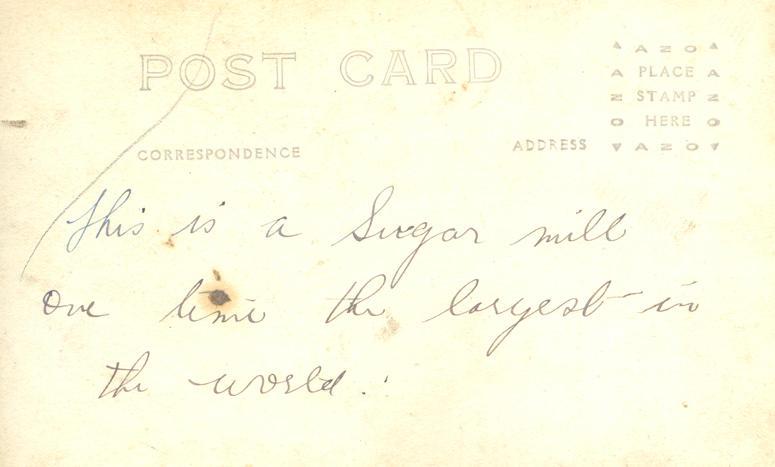 POST CARD
AZO
PLACE
STAMP
HERE
AZO
AZO
AZO
CORRESPONDENCE
ADDRESS
This is a Sugar mill
one time the largest in
the world.